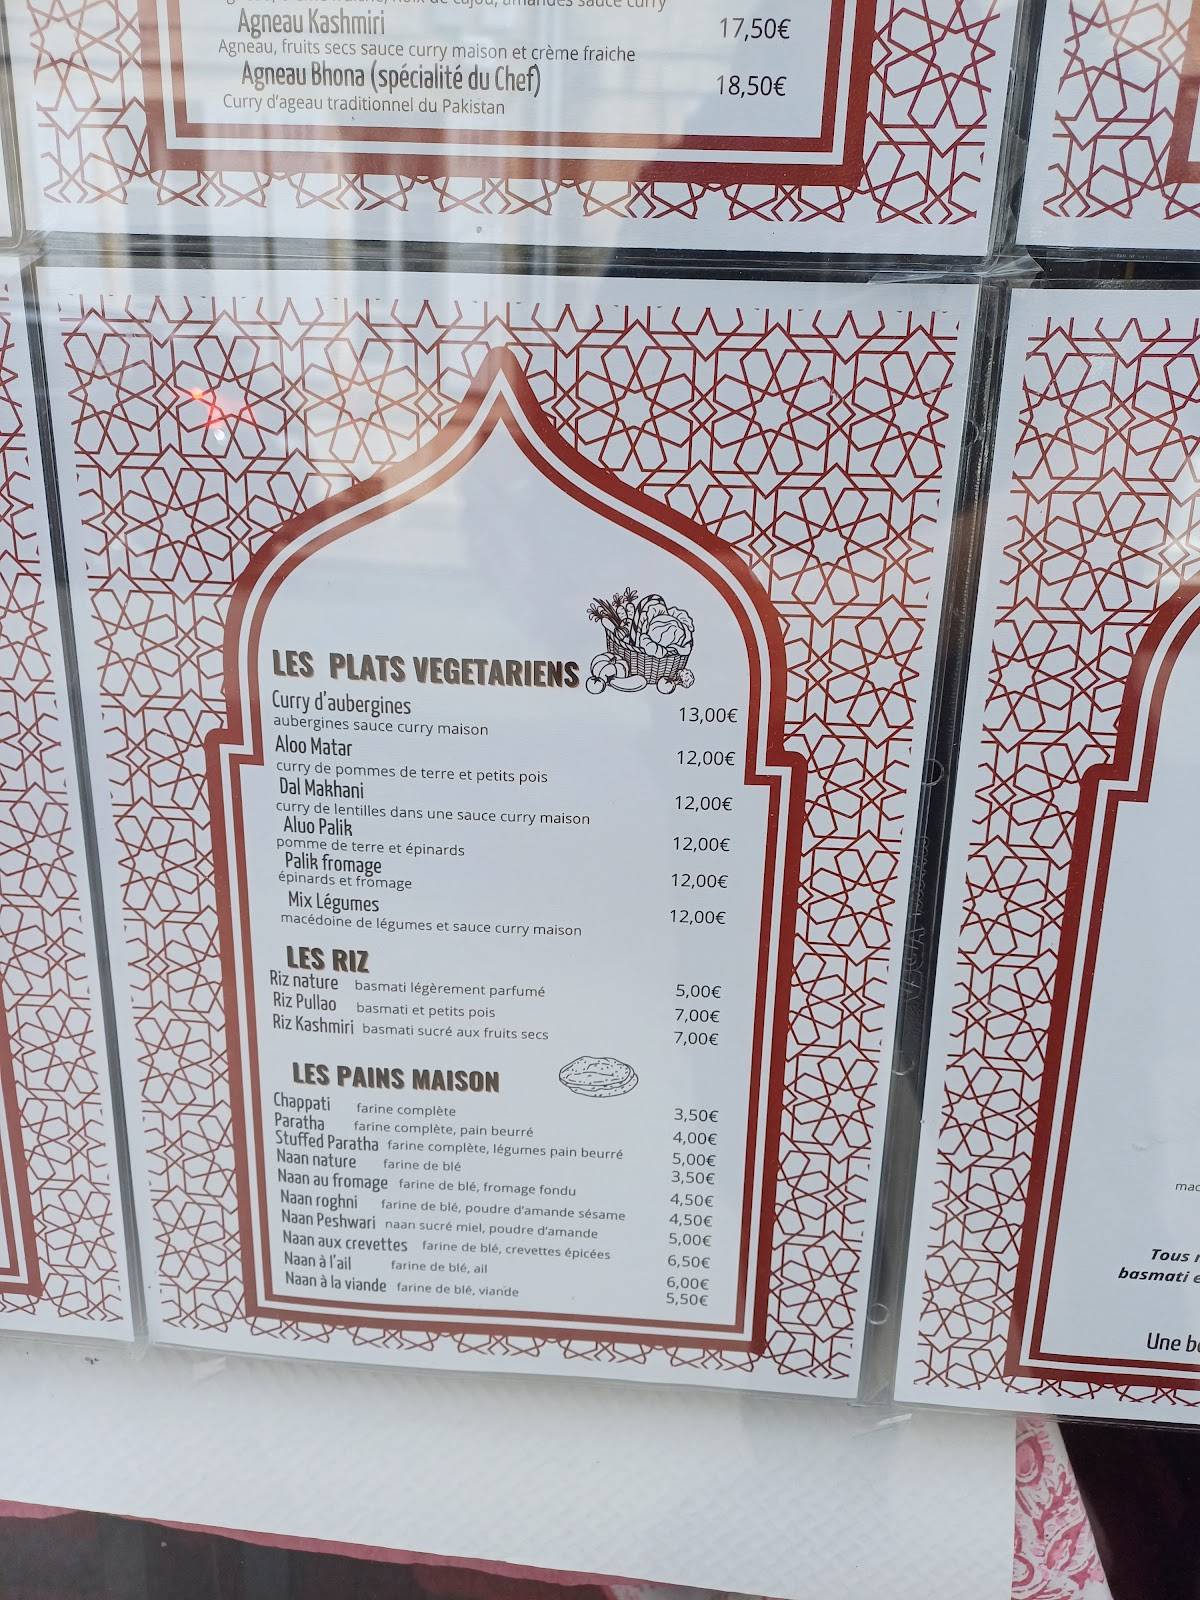 sauce curry
Agneau Kashmiri 17,50€
Agneau, fruits secs sauce curry maison et crème fraiche
Agneau Bhona (spécialité du Chef) 18,50€
Curry d'ageau traditionnel du Pakistan
LES PLATS VEGETARIENS
Curry d'aubergines 13,00€
aubergines sauce curry maison
Aloo Matar 12,00€
curry de pommes de terre et petits pois
Dal Makhani 12,00€
curry de lentilles dans une sauce curry maison
Aluo Palik 12,00€
pomme de terre et épinards
Palik fromage 12,00€
épinards et fromage
Mix Légumes 12,00€
macédoine de légumes et sauce curry maison
LES RIZ
Riz nature basmati légèrement parfumé 5,00€
Riz Pullao basmati et petits pois 7,00€
Riz Kashmiri basmati sucré aux fruits secs 7,00€
LES PAINS MAISON
Chappati farine complète 3,50€
Paratha farine complète, pain beurré 4,00€
Stuffed Paratha farine complète, légumes pain beurré 5,00€
Naan nature farine de blé 3,50€
Naan au fromage farine de blé, fromage fondu 4,50€
Naan roghni farine de blé, poudre d'amande sésame 4,50€
Naan Peshwari naan sucré miel, poudre d'amande 5,00€
Naan aux crevettes farine de blé, crevettes épicées 6,50€
Naan à l'ail farine de blé, ail 6,00€
Naan à la viande farine de blé, viande 5,50€
Tous
basmati
Une